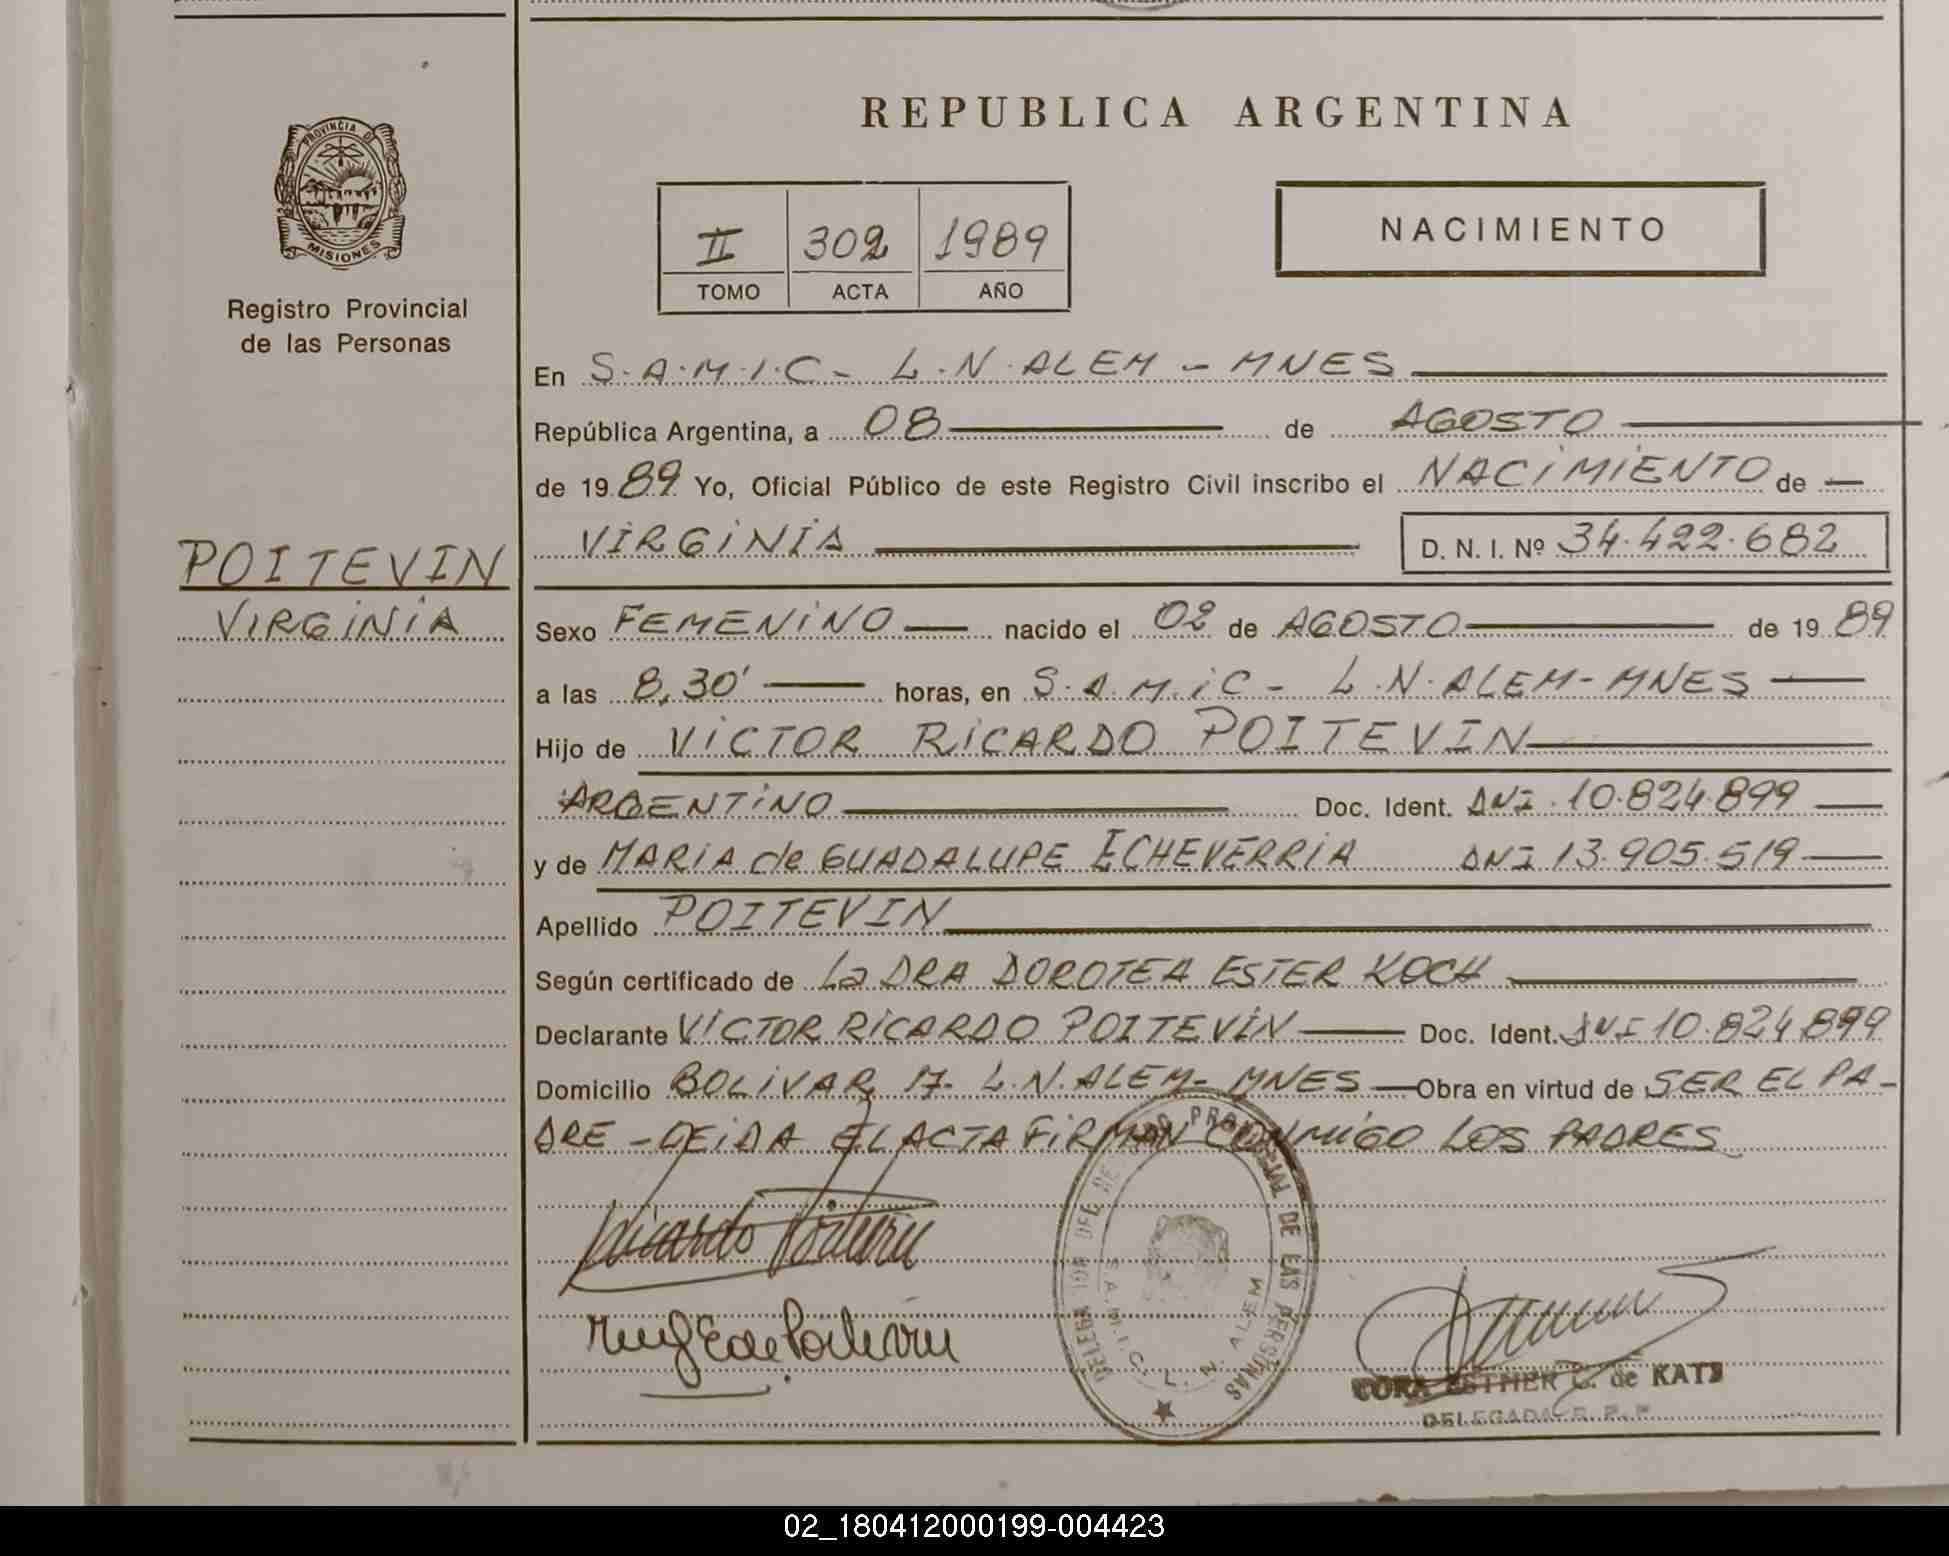 REPUBLICA ARGENTINA
PROVINCIA DE
MISIONES
Registro Provincial
de las Personas
II 302 1989
TOMO ACTA AÑO
NACIMIENTO
En S.A.M.I.C - L.N. ALEM - MNES
República Argentina, a 08 de AGOSTO
de 1989 Yo, Oficial Público de este Registro Civil inscribo el NACIMIENTO de
VIRGINIA D. N. I. Nº 34.422.682
POITEVIN
VIRGINIA
Sexo FEMENINO nacido el 02 de AGOSTO de 1989
a las 8,30' horas, en S.A.M.I.C - L.N. ALEM - MNES
Hijo de VICTOR RICARDO POITEVIN
ARGENTINO Doc. Ident. DNI. 10.824.899
y de MARIA de GUADALUPE ECHEVERRIA DNI 13.905.519
Apellido POITEVIN
Según certificado de La DRA DOROTEA ESTER KOCH
Declarante VICTOR RICARDO POITEVIN Doc. Ident. DNI 10.824.899
Domicilio BOLIVAR 17. L.N. ALEM - MNES Obra en virtud de SER EL PA-
DRE - LEIDA EL ACTA FIRMAN CONMIGO LOS PADRES
Ricardo Poitevin
DE LAS PERSONAS
S.A.M.I.C. L. N. ALEM
CORA ESTHER G. de KATZ
DELEGADA R. P. P.
02_180412000199-004423